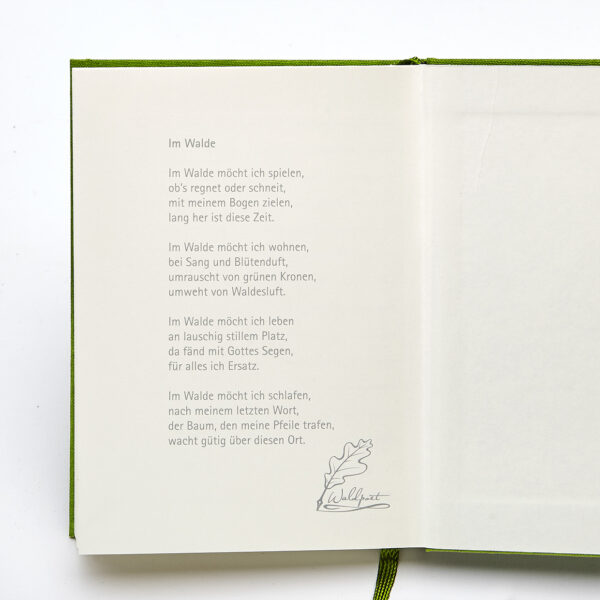 Im Walde
Im Walde möcht ich spielen,
ob's regnet oder schneit,
mit meinem Bogen zielen,
lang her ist diese Zeit.
Im Walde möcht ich wohnen,
bei Sang und Blütenduft,
umrauscht von grünen Kronen,
umweht von Waldesluft.
Im Walde möcht ich leben
an lauschig stillem Platz,
da fänd mit Gottes Segen,
für alles ich Ersatz.
Im Walde möcht ich schlafen,
nach meinem letzten Wort,
der Baum, den meine Pfeile trafen,
wacht gütig über diesen Ort.
Waldpoet